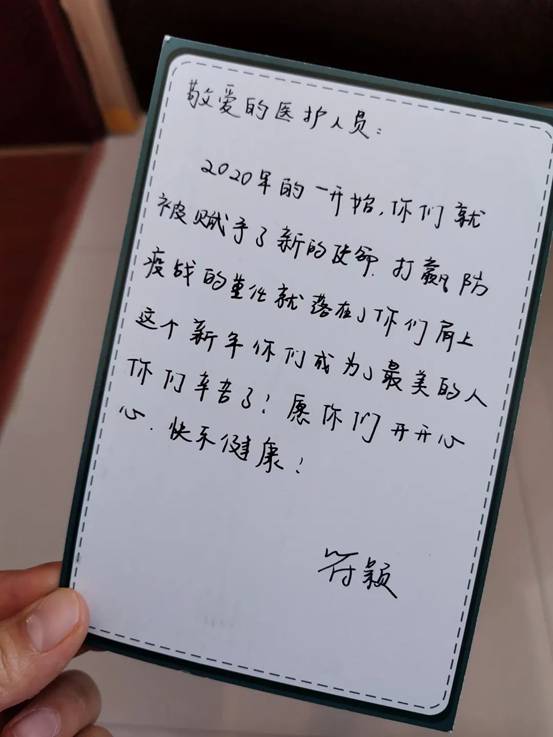 敬爱的医护人员:
2020年的一开始,你们就
被赋予了新的使命.打赢防
疫战的重任就落在了你们肩上
这个新年你们成为了最美的人
你们辛苦了!愿你们开开心
心.快乐健康!
符颖